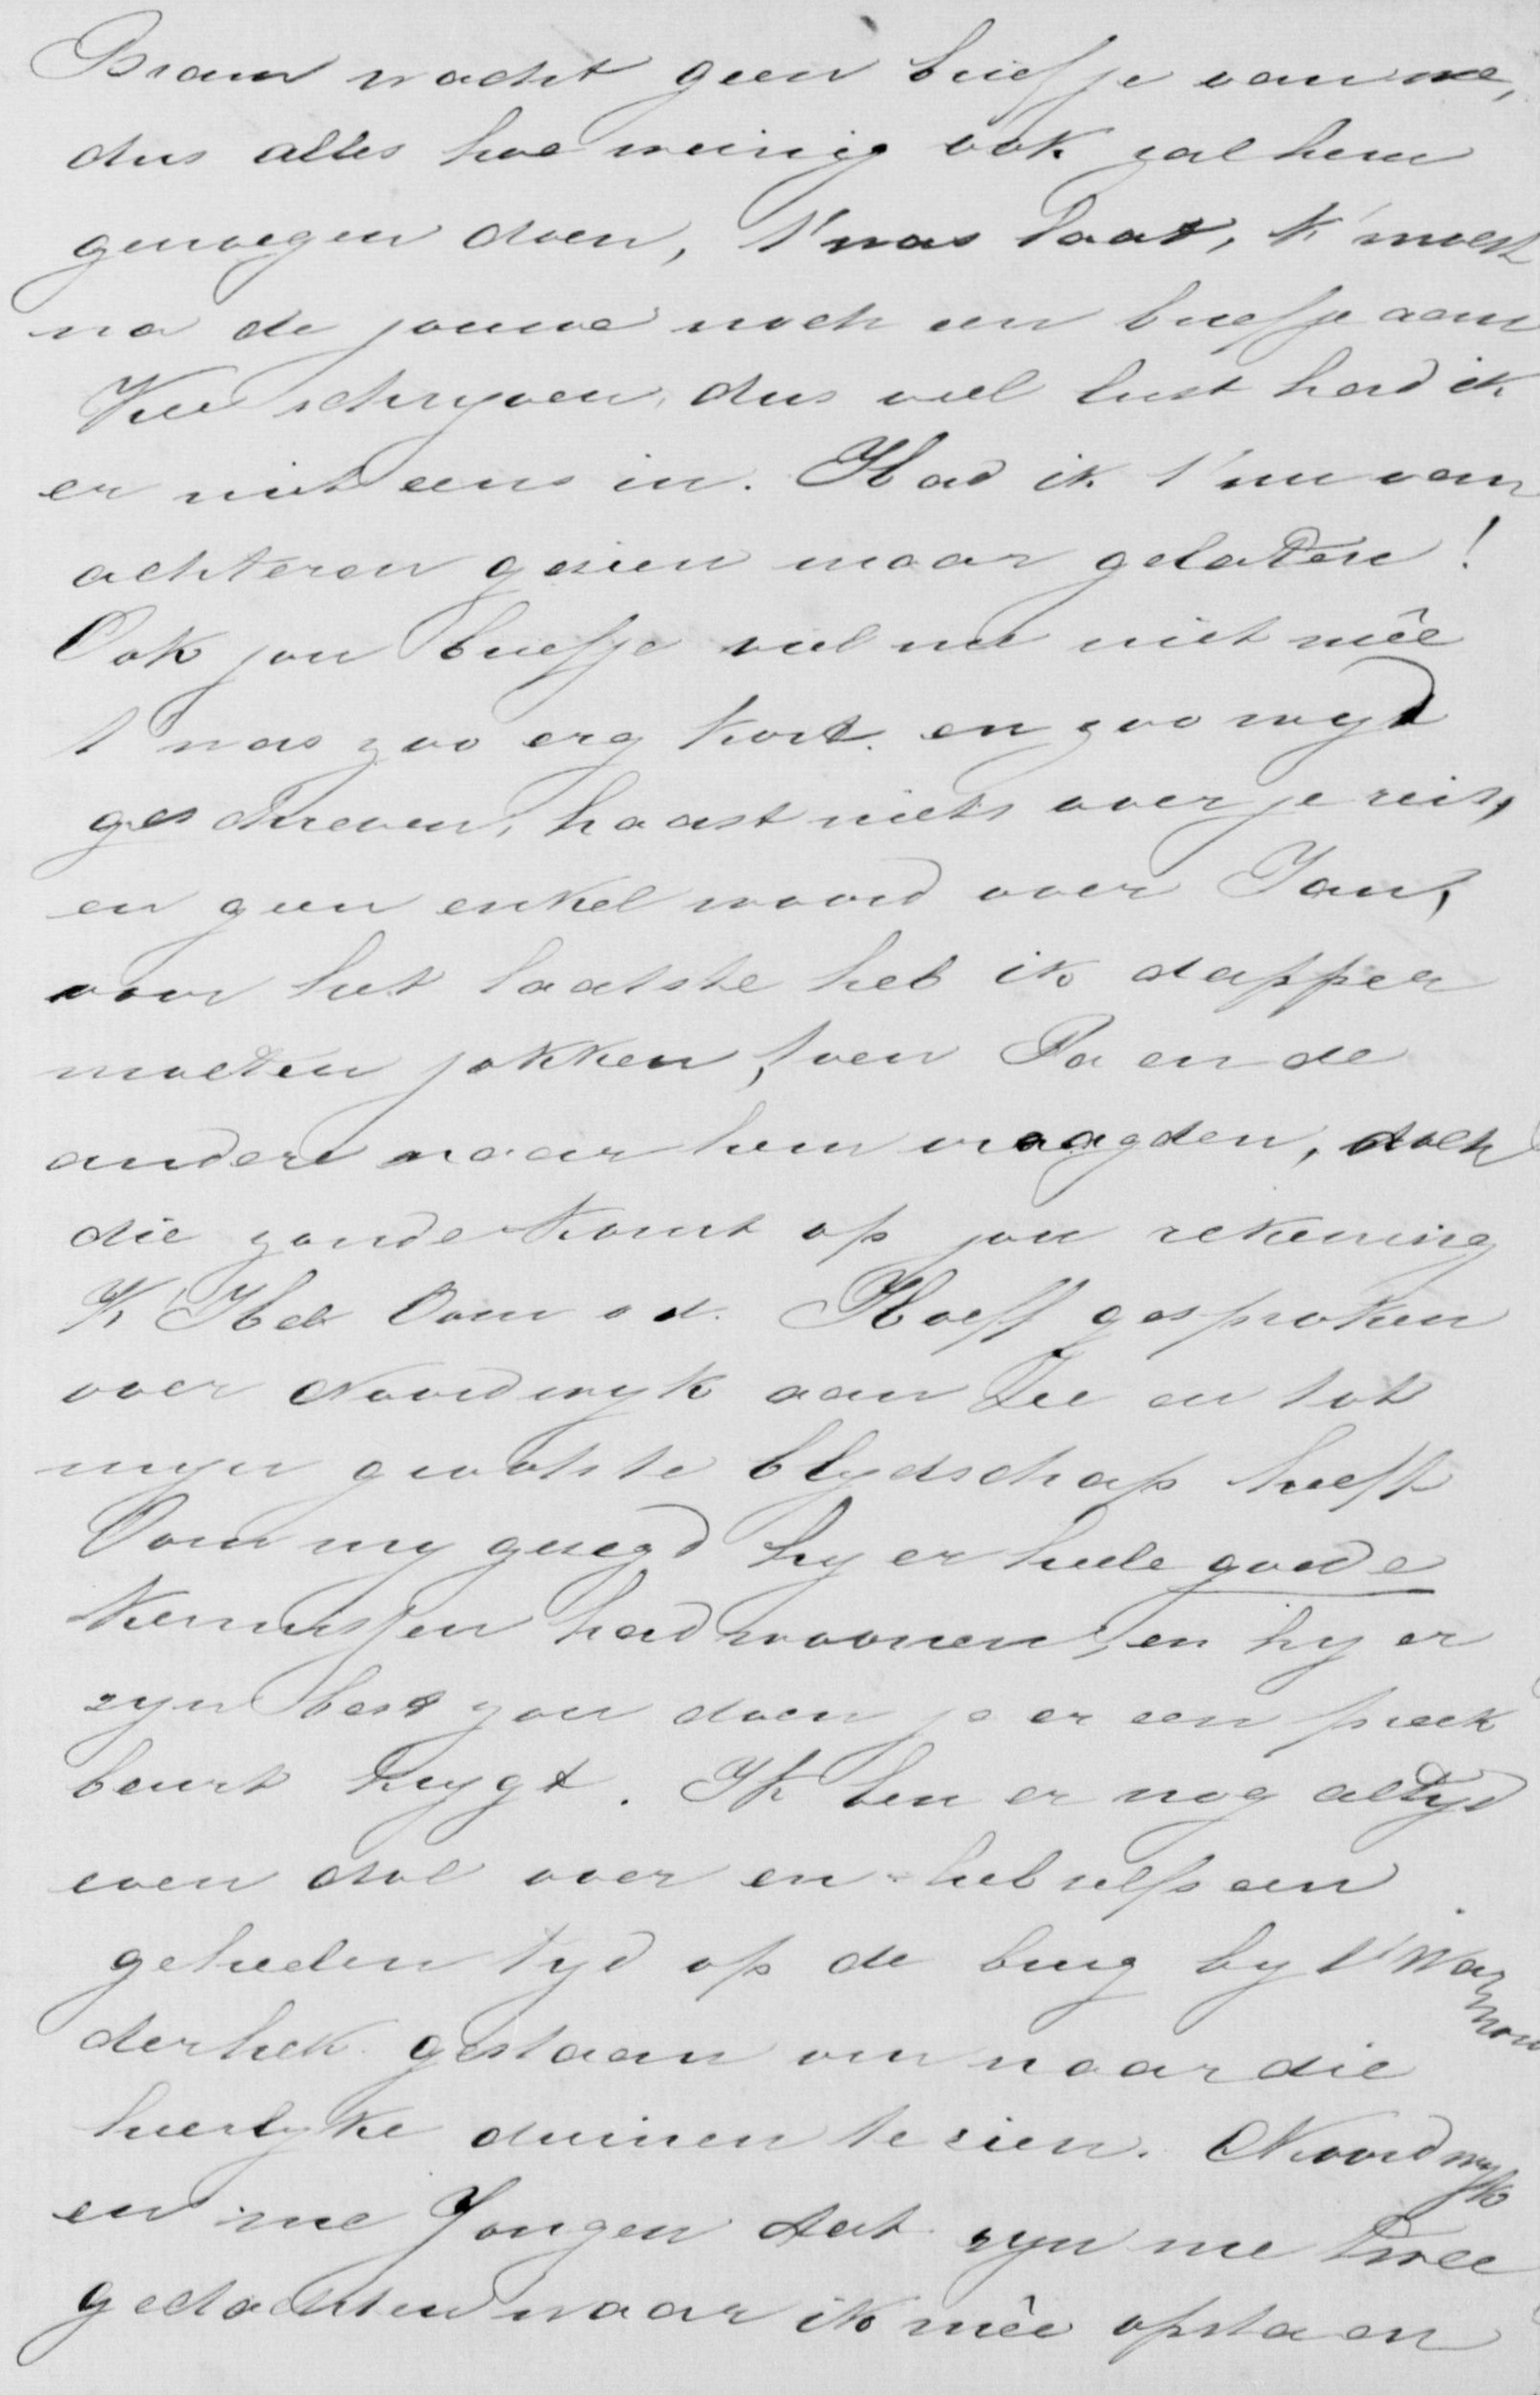 Bram wacht geen briefje van me,
dus alles hoe weinig ook zal hem
genoegen doen, t'was laat, k'moest
na de jouwe noch een briefje aan
Kee schryven, dus veel lust had ik
er niet eens in. Had ik t'nu van
achteren gezien maar gelaten!
Ook jou briefje viel me niet mêe
t'was zoo erg kort en zoo wyd
geschreven, haast niets over je reis,
en geen enkel woord over Jan,
voor het laatste heb ik dapper
moeten jokken, toen Pa en de
andere naar hem vraagden, doch
die zonde komt op jou rekening
K'Heb Oom v d. Hoeff gesproken
over Noordwyk aan Zee en tot
myn grootste blydschap heeft
Oom my gezegd hy er heele goede
kennissen had woonen, en hy er
zyn best zou doen je er een preek
beurt krygt. Ik ben er nog altyd
even dol over en heb zelfs een
geheelen tyd op de brug by t'Warmon
derhek gestaan om naar die
heerlyke duinen te zien. Noordwyk
en me Jongen dat zyn me twee
gedachten waar ik mêe opsta en